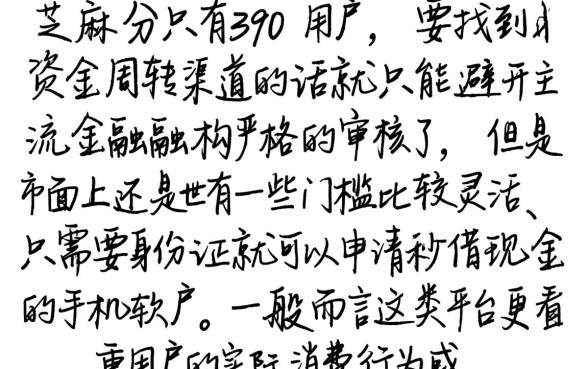 芝麻分只有390用户，要找到
资金周转渠道的话就只能避开主
流金融融构严格的审核了，但是
市面上还是也有一些门槛比较灵活、
只需要身份证就可以申请秒借现金
的手机软户。一般而言这类平台更看
重用户的实际消费行为或